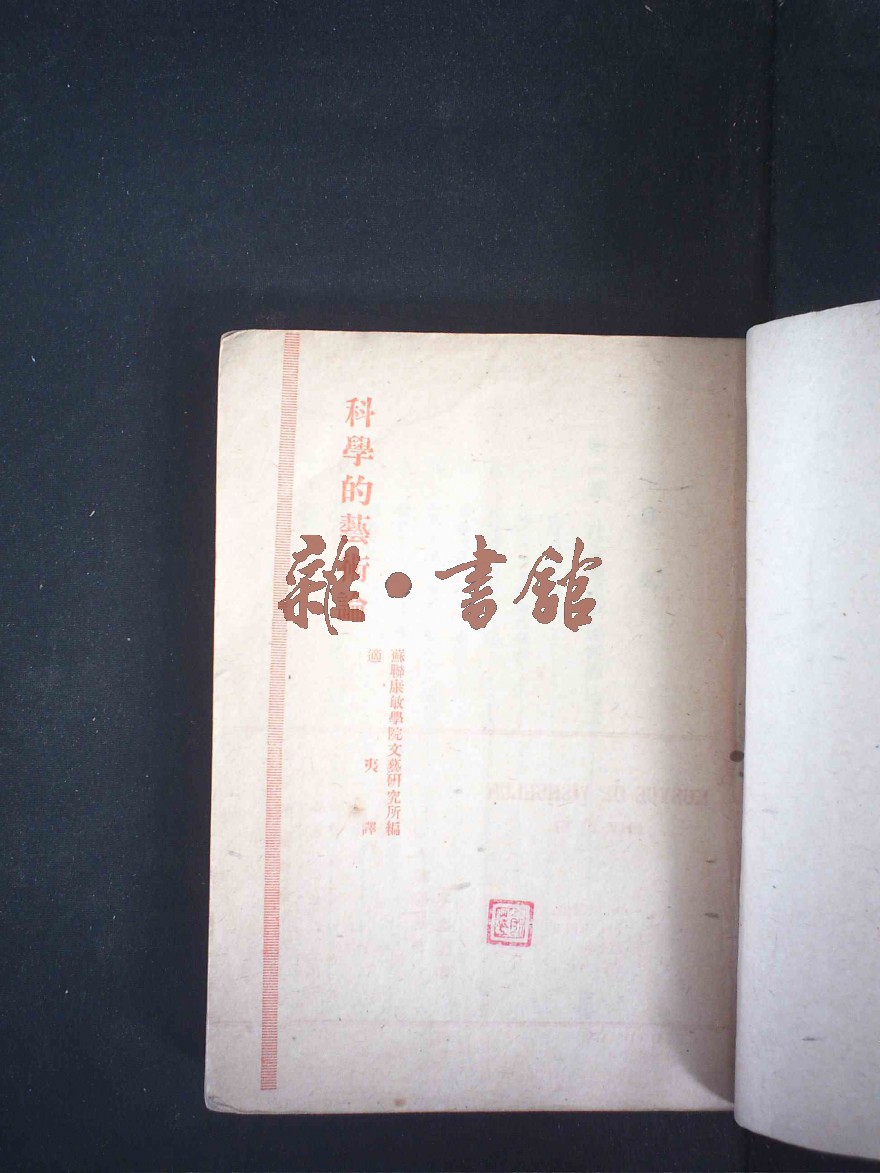 科學的藝術論
蘇聯康敏學院文藝研究所編
適夷譯
雜·書館